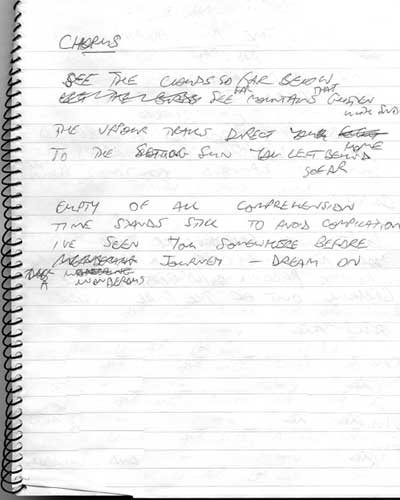 CHORUS
SEE THE CLOUDS SO FAR BELOW
SEE FAR MOUNTAINS THAT GLISTEN
WITH
THE VAPOUR TRAILS DIRECT
HOME
TO THE SETTING SUN YOU LEFT BEHIND
SO FAR
EMPTY OF ALL COMPREHENSION
TIME STANDS STILL TO AVOID COMPILATION
I'VE SEEN YOU SOMEWHERE BEFORE
JOURNEY — DREAM ON
TAKE A
WONDEROUS